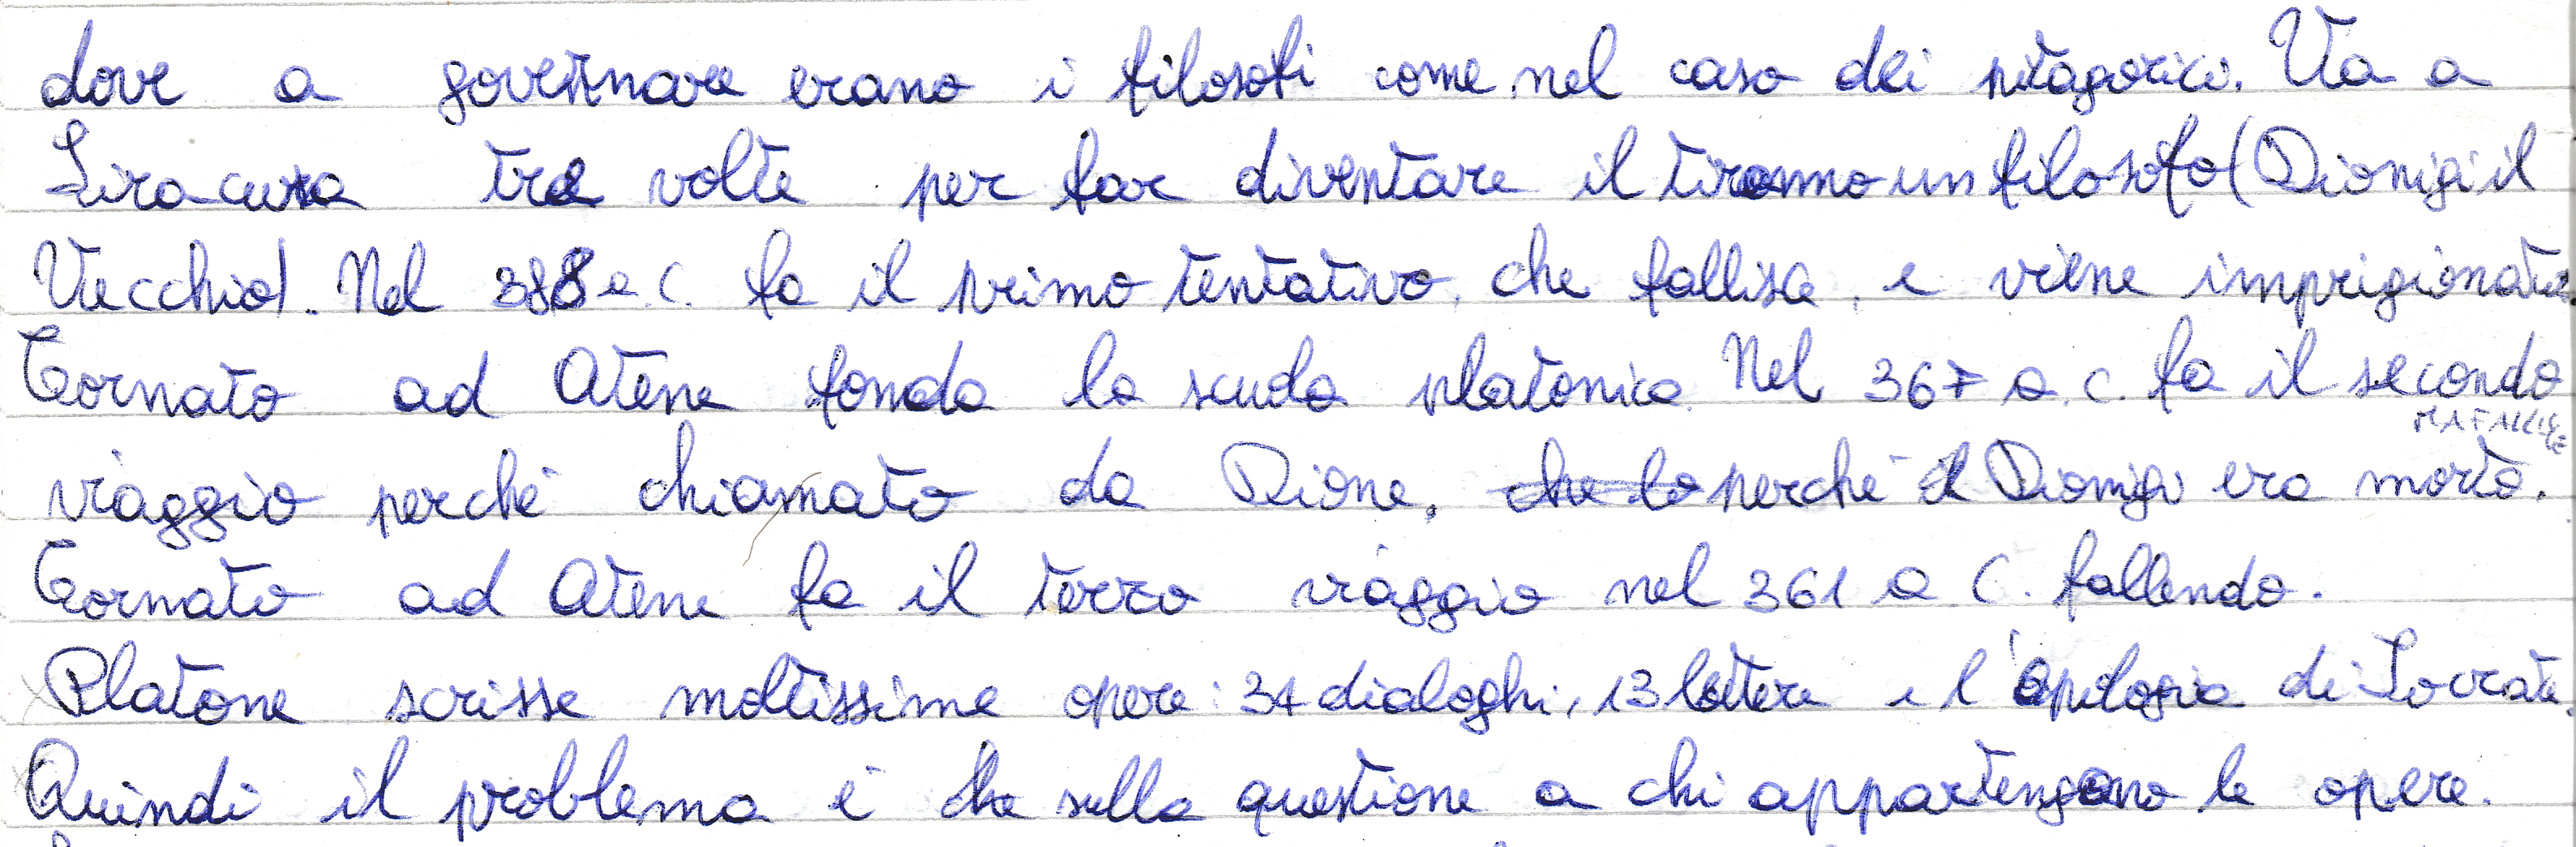 dove a governare erano i filosofi come nel caso dei pitagorici. Va a
Siracusa tre volte per far diventare il tiranno un filosofo (Dionigi il
Vecchio). Nel 388 a.C. fa il primo tentativo, che fallisce, e viene imprigionato.
Tornato ad Atene fonda la scuola platonica. Nel 367 a.c. fa il secondo
MA FALLISCE
viaggio perché chiamato da Dione, che lo perché il Dionigi era morto.
Tornato ad Atene fa il terzo viaggio nel 361 a C. fallendo.
Platone scrisse moltissime opere: 34 dialoghi, 13 lettere e l'apologia di Socrate.
Quindi il problema è che sulla questione a chi appartengano le opere.